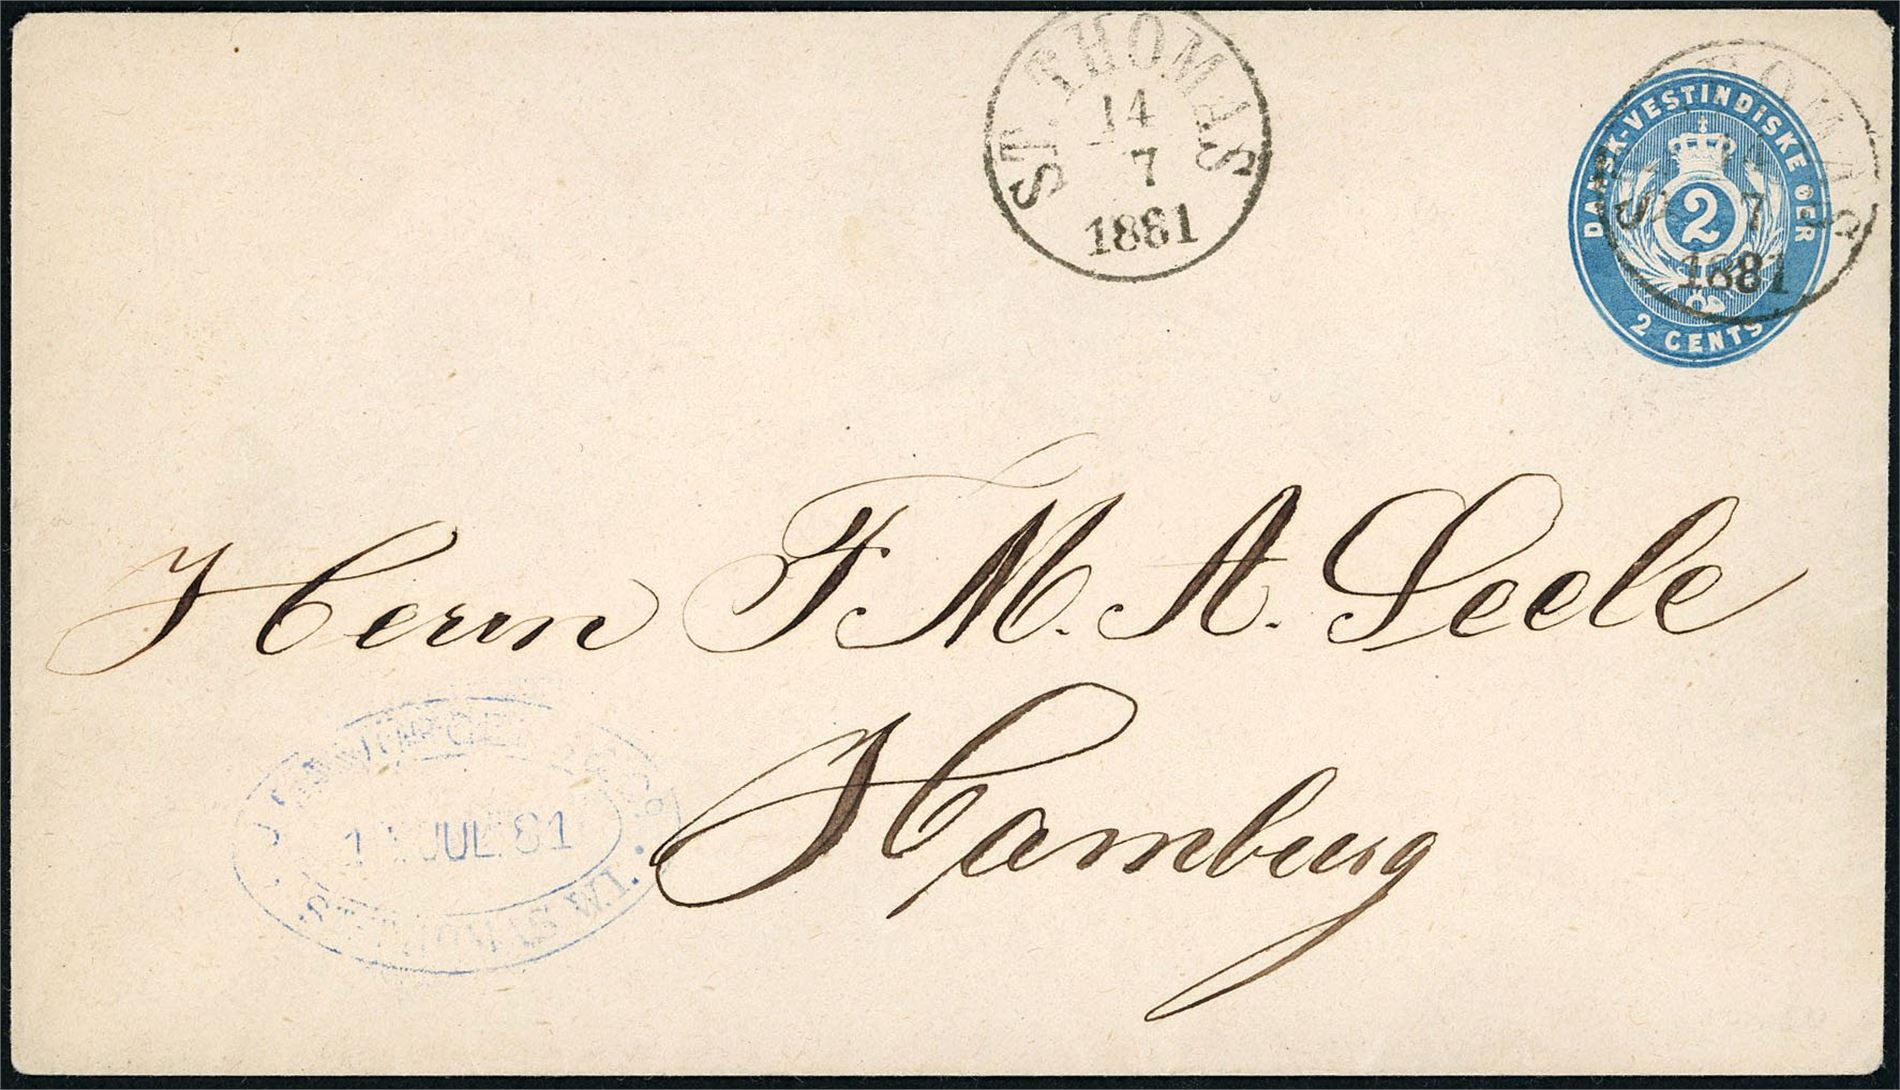 ST. THOMAS
14
7
1881
DANSK-VESTINDISKE ØER
2
2 CENTS
7
1881
Herrn F. M. A. Seele
Hamburg
JUL 81
ST. THOMAS W.I.